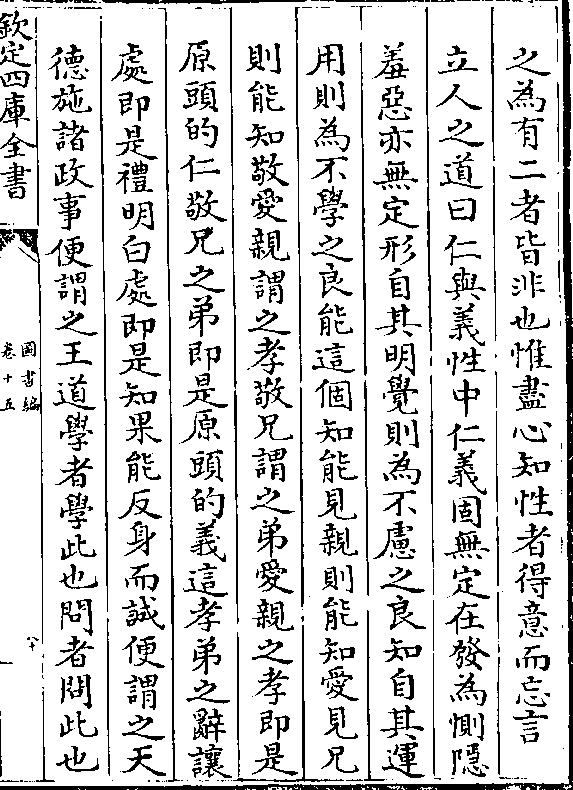 之為有二者皆非也惟盡心知性者得意而忘言
立人之道曰仁與義性中仁義固無定在發為惻隱
羞惡亦無定形自其明覺則為不慮之良知自其運
用則為不學之良能這個知能見親則能知愛見兄
則能知敬愛親謂之孝敬兄謂之弟愛親之孝即是
原頭的仁敬兄之弟即是原頭的義這孝弟之辭讓
處即是禮明白處即是知果能反身而誠便謂之天
德施諸政事便謂之王道學者學此也問者問此也
欽定四庫全書
圖書編
卷十五
八十